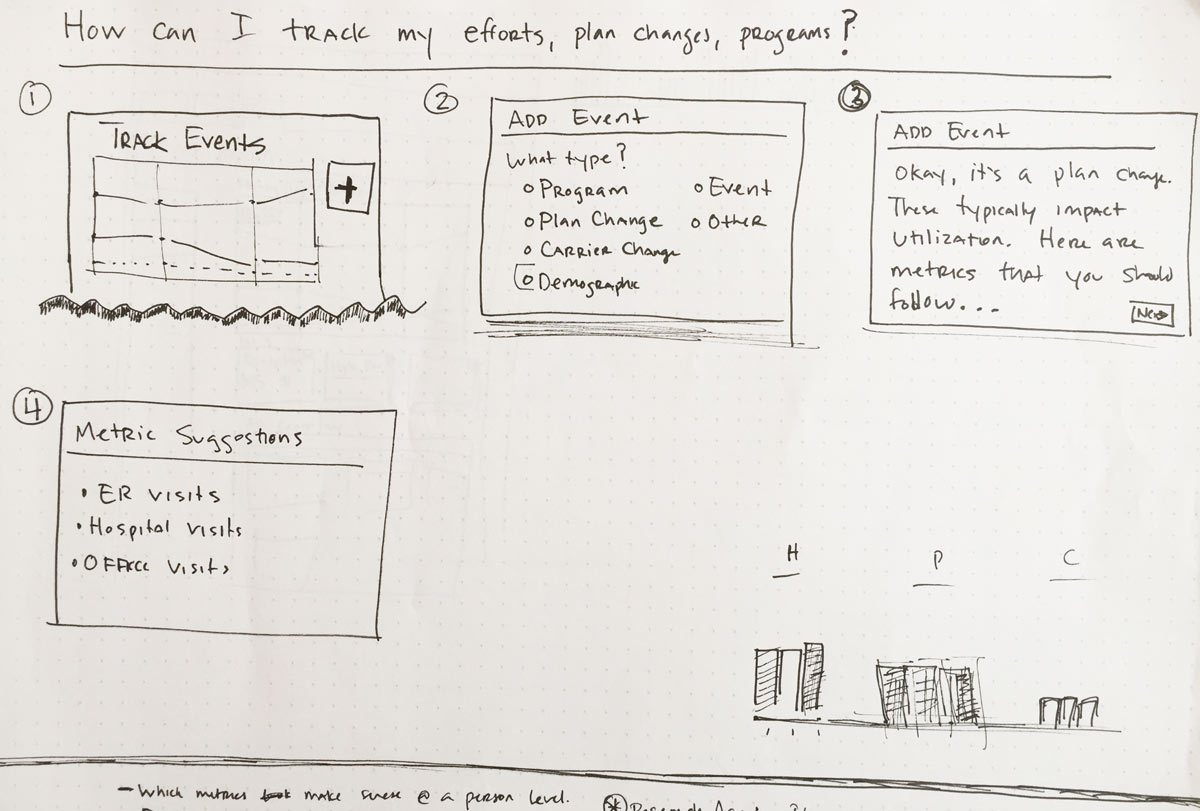 How can I track my efforts, plan changes, programs?
1
Track Events
+
2
Add Event
What type?
Program
Event
Plan Change
Other
Carrier Change
Demographic
3
Add Event
Okay, it's a plan change.
These typically impact
utilization. Here are
metrics that you should
follow...
Next
4
Metric Suggestions
• ER visits
• Hospital visits
• Office visits
H P C
- Which metrics make sense @ a person level.